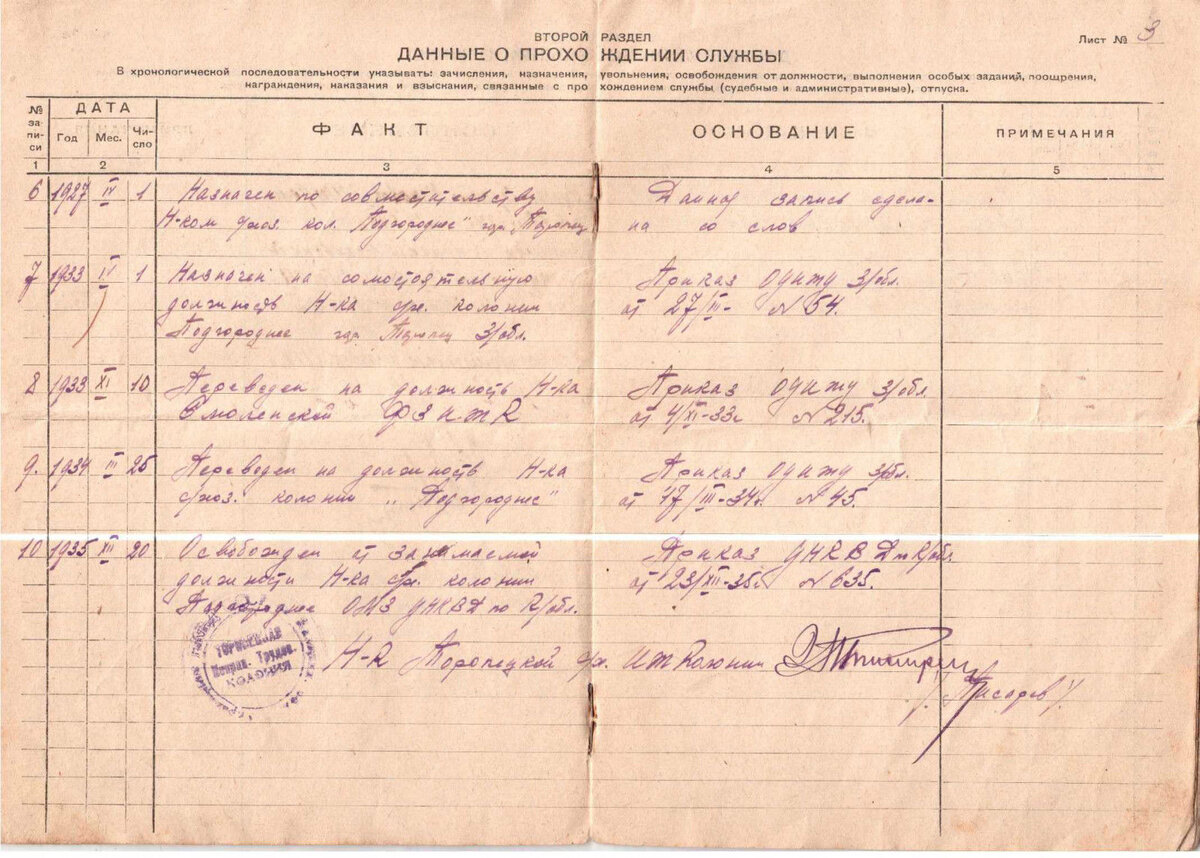 ВТОРОЙ РАЗДЕЛ
Лист № 3
ДАННЫЕ О ПРОХОЖДЕНИИ СЛУЖБЫ
В хронологической последовательности указывать: зачисления, назначения, увольнения, освобождения от должности, выполнения особых заданий, поощрения,
награждения, наказания и взыскания, связанные с прохождением службы (судебные и административные), отпуска.
№ за-пи-си
ДАТА
Год Мес. Чи-сло
ФАКТ
ОСНОВАНИЕ
ПРИМЕЧАНИЯ
1 2 3 4 5
6 1927 IV 1 Назначен по совместательству Данная запись сдела-
Н-ком кол. Подгороднее" гор. Торопец на со слов
7 1933 IV 1 Назначен на самостоятельную Приказ З/обл.
должность Н-ка колонии от 27/III- N 54.
Подгороднее гор. Торопец З/обл.
8 1933 XI 10 Переведен на должность Н-ка Приказ З/обл.
Смоленской от 4/XI-33г. N 215.
9. 1934 III 25 Переведен на должность Н-ка Приказ З/обл.
колонии „Подгороднее" от 17/III-34г. N 45.
10 1935 XII 20 Освобожден от занимаемой Приказ УНКВД
должности Н-ка колонии от 23/XII-35г. N 635.
Подгороднее ОМЗ УНКВД по К/обл.
Н-к Торопецкой
/Писарев/
ТОРОПЕЦКАЯ
Исправ. Трудов.
КОЛОНИЯ